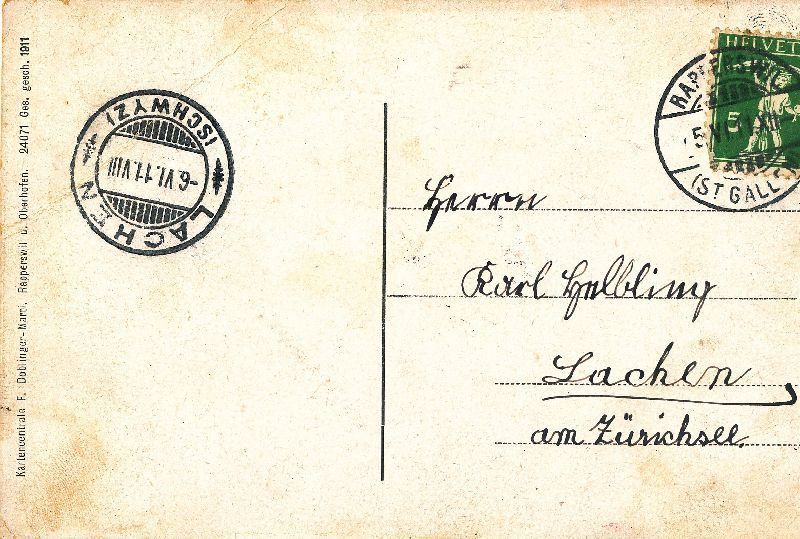 Kartencentrale F. Doblinger-Marpi, Rapperswil u. Oberhofen. 24071 Ges. gesch. 1911
LACHEN
(SCHWYZ)
-6.VI.11.VIII
HELVETIA
5
RAPPERSWIL
(ST GALL
Herrn
Karl Helbling
Lachen
am Zürichsee.